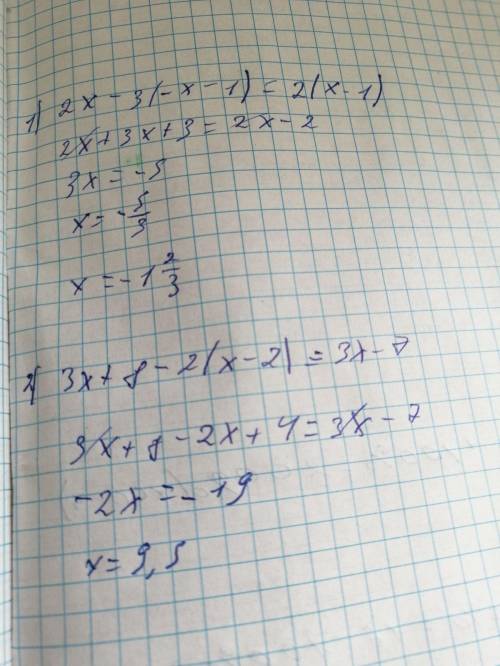 1) 2x - 3(-x - 1) = 2(x - 1)
2x + 3x + 3 = 2x - 2
3x = -5
x = -5/3
x = -1 2/3
2) 3x + 8 - 2(x - 2) = 3x - 7
3x + 8 - 2x + 4 = 3x - 7
-2x = -19
x = 9,5